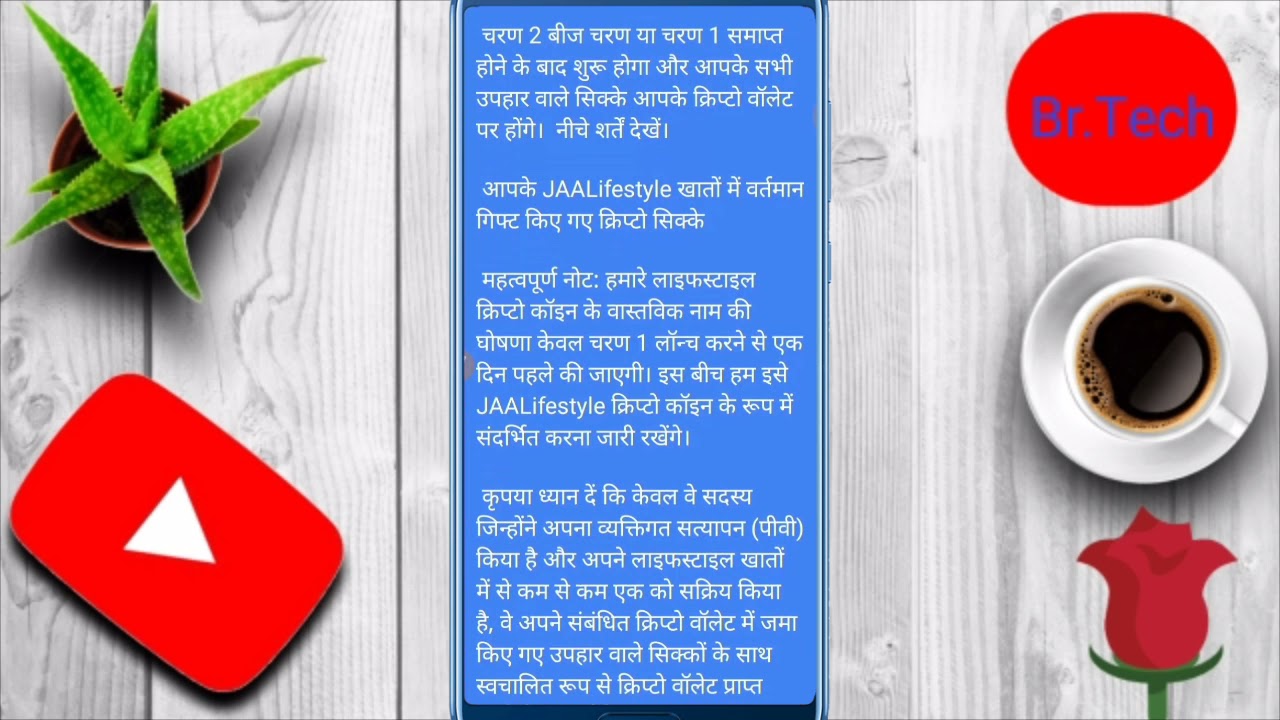 चरण 2 बीज चरण या चरण 1 समाप्त
होने के बाद शुरू होगा और आपके सभी
उपहार वाले सिक्के आपके क्रिप्टो वॉलेट
पर होंगे। नीचे शर्तें देखें।
आपके JAALifestyle खातों में वर्तमान
गिफ्ट किए गए क्रिप्टो सिक्के
महत्वपूर्ण नोट: हमारे लाइफस्टाइल
क्रिप्टो कॉइन के वास्तविक नाम की
घोषणा केवल चरण 1 लॉन्च करने से एक
दिन पहले की जाएगी। इस बीच हम इसे
JAALifestyle क्रिप्टो कॉइन के रूप में
संदर्भित करना जारी रखेंगे।
कृपया ध्यान दें कि केवल वे सदस्य
जिन्होंने अपना व्यक्तिगत सत्यापन (पीवी)
किया है और अपने लाइफस्टाइल खातों
में से कम से कम एक को सक्रिय किया
है, वे अपने संबंधित क्रिप्टो वॉलेट में जमा
किए गए उपहार वाले सिक्कों के साथ
स्वचालित रूप से क्रिप्टो वॉलेट प्राप्त
Br.Tech